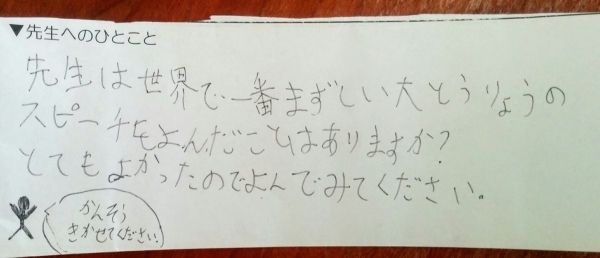 ▼先生へのひとこと
先生は世界で一番まずしい大とうりょうの
スピーチをよんだことはありますか？
とてもよかったのでよんでみてください。
かんそう
きかせてください